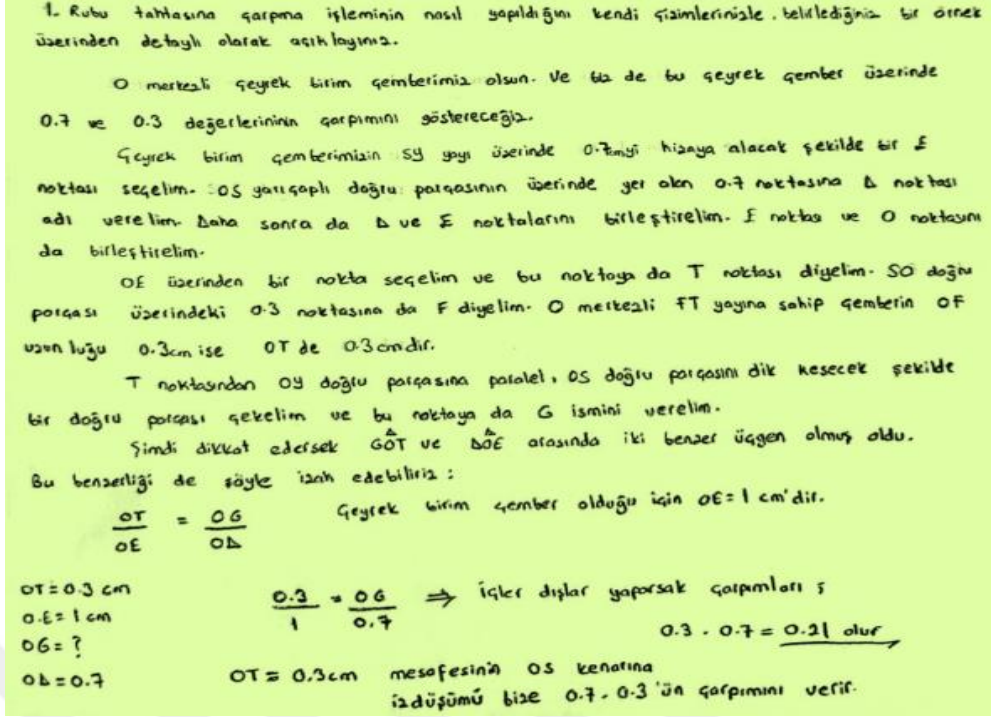 1. Rubu tahtasına çarpma işleminin nasıl yapıldığını kendi çizimlerinizle. belirlediğiniz bir örnek
üzerinden detaylı olarak açıklayınız.
O merkezli çeyrek birim çemberimiz olsun. Ve biz de bu çeyrek çember üzerinde
0.7 ve 0.3 değerlerininin çarpımını göstereceğiz.
Çeyrek birim çemberimizin SY yayı üzerinde 0.7cmyi hizaya alacak şekilde bir E
noktası seçelim. OS yarıçaplı doğru parçasının üzerinde yer alan 0.7 noktasına D noktası
adı verelim. Daha sonra da D ve E noktalarını birleştirelim. E noktası ve O noktasını
da birleştirelim.
OE üzerinden bir nokta seçelim ve bu noktaya da T noktası diyelim. SO doğru
parçası üzerindeki 0.3 noktasına da F diyelim. O merkezli FT yayına sahip çemberin OF
uzunluğu 0.3cm ise OT de 0.3cmdir.
T noktasından OY doğru parçasına paralel, OS doğru parçasını dik kesecek şekilde
bir doğru parçası çekelim ve bu noktaya da G ismini verelim.
Şimdi dikkat edersek GÔT ve DÔE arasında iki benzer üçgen olmuş oldu.
Bu benzerliği de şöyle izah edebiliriz :
OT/OE = OG/OD Çeyrek birim çember olduğu için OE=1 cm'dir.
OT=0.3 cm
O.E=1 cm
OG=?
OD=0.7
0.3/1 = OG/0.7 ⇒ İçler dışlar yaparsak çarpımları ;
0.3 . 0.7 = 0.21 olur
OT = 0.3cm mesafesinin OS kenarına
izdüşümü bize 0.7 . 0.3'ün çarpımını verir.